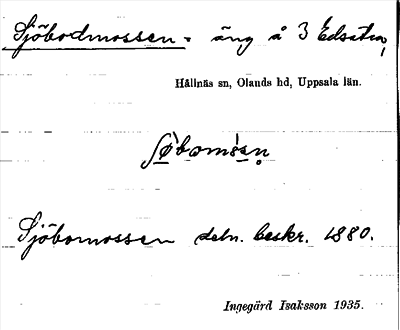 Sjöbodmossen - äng å 3 Edsätra,
Hållnäs sn, Olands hd, Uppsala län.
Sjöbomossen deln. beskr. 1880.
Ingegärd Isaksson 1935.